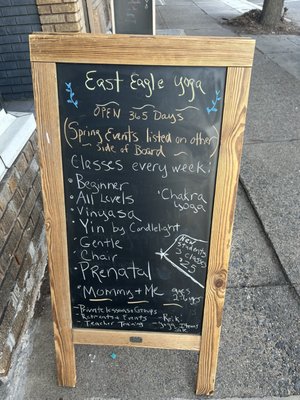 East Eagle Yoga
OPEN 365 Days
(Spring Events listed on other
side of Board)
Classes every week:
• Beginner
• All Levels
• Vinyasa
• Yin by Candlelight
• Gentle
• Chair
• Prenatal
• Mommy + Me ages
• Chakra
Yoga
New
Students
3 classes
$25
- Private lessons + Groups
- Retreats + Events
- Teacher Training
- Reiki